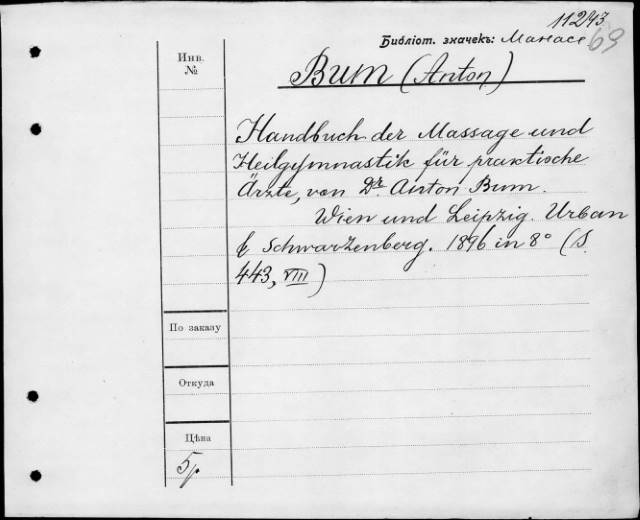 11243
Библіот. значекъ: Манасе
69
Инв.
№
Bum (Anton)
Handbuch der Massage und
Heilgymnastik für praktische
Ärzte, von Dr. Anton Bum.
Wien und Leipzig. Urban
& Schwarzenberg. 1896 in 8° (S.
443, VIII)
По заказу
Откуда
Цѣна
5 р.